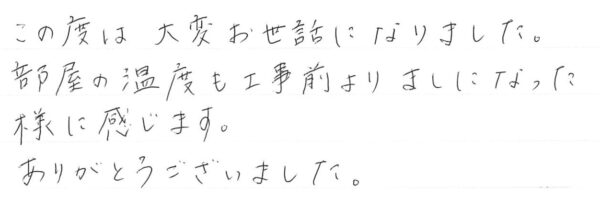 この度は 大変お世話になりました。
部屋の温度も工事前より ましになった
様に感じます。
ありがとうございました。